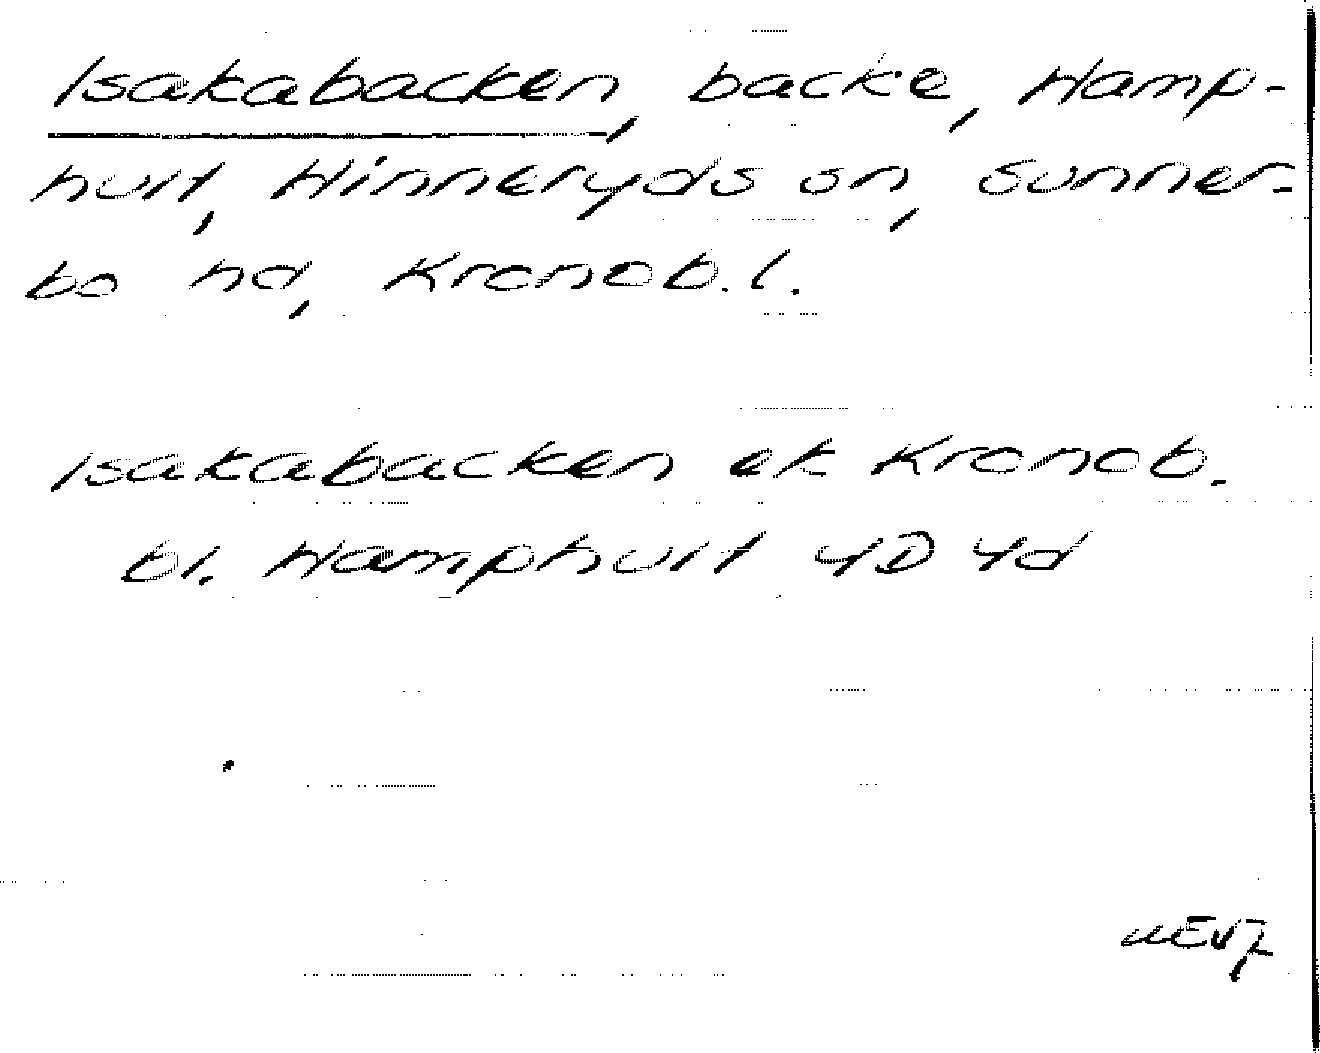 Isakabacken, backe, Hamp-
hult, Hinneryds sn, Sunner-
bo hd, Kronob. l.
Isakabacken ek Kronob.
bl. Hamphult 4D 4d